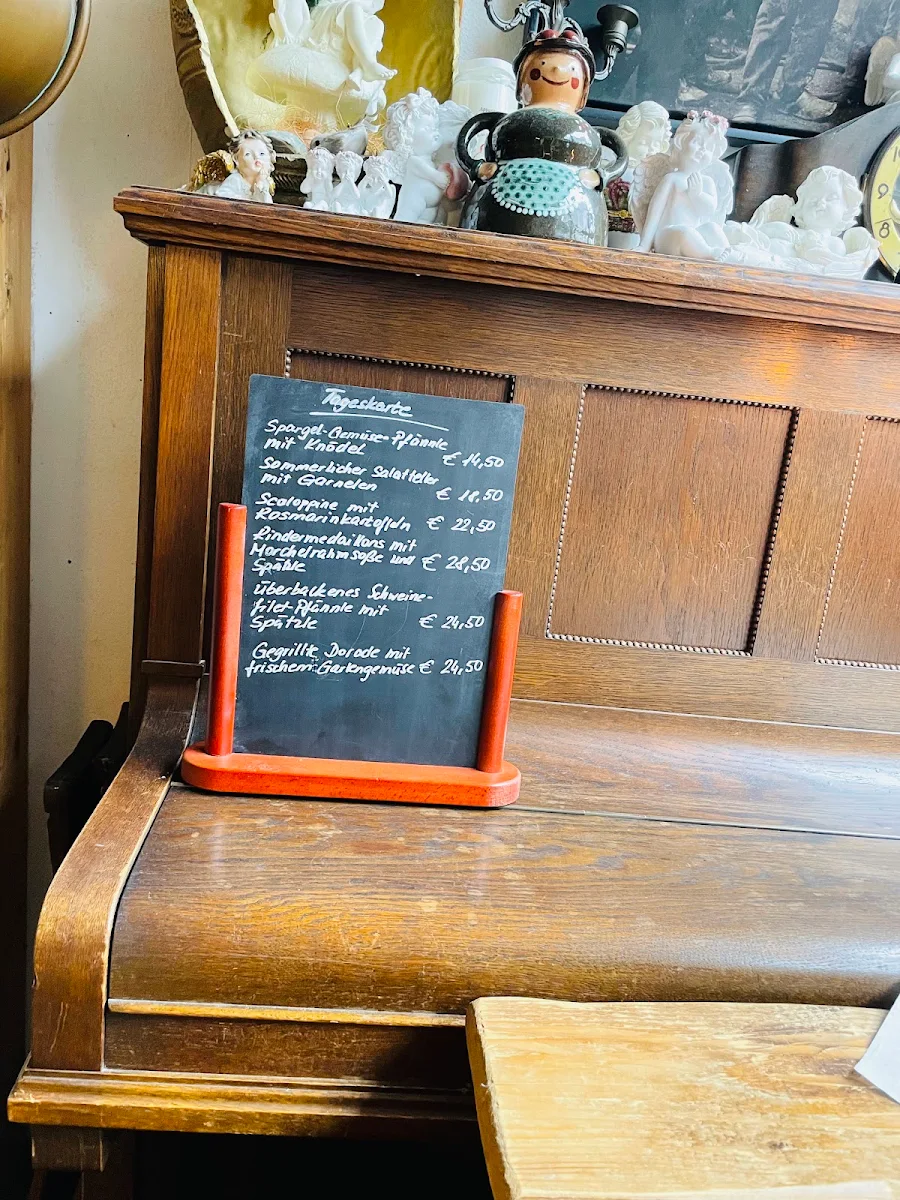 Tageskarte
Spargel-Gemüse-Pfännle
mit Knödel
€ 14,50
Sommerlicher Salatteller
mit Garnelen
€ 18,50
Scaloppine mit
Rosmarinkartoffeln € 22,50
Rindermedaillons mit
Morchelrahmsoße und € 28,50
Spätzle
überbackenes Schweine-
filet-Pfännle mit
Spätzle € 24,50
Gegrillte Dorade mit
frischem Gartengemüse € 24,50
10
9
8